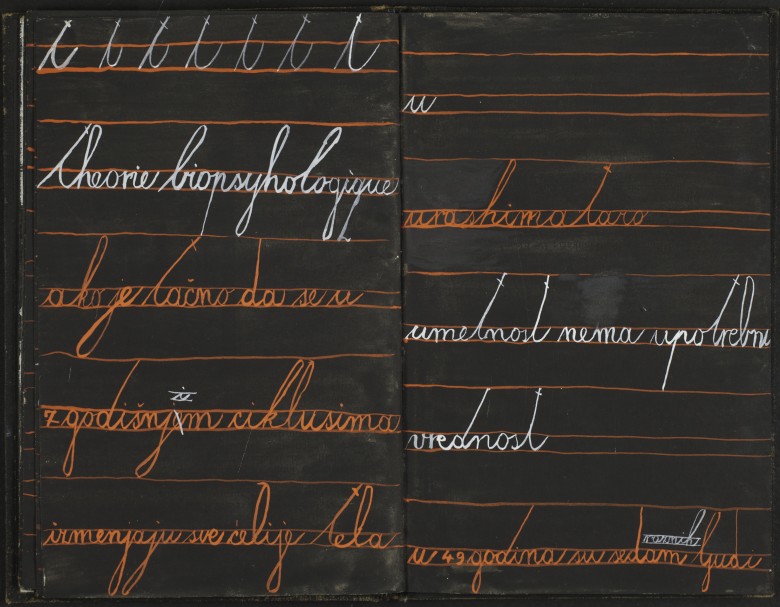 t t t t t t
theorie biopsyhologique
ako je tačno da se u
7 godišnjim ciklusima
izmenjaju sve ćelije tela
u
urashima taro
umetnost nema upotrebnu
vrednost
u 49 godina su sedam raznih ljudi